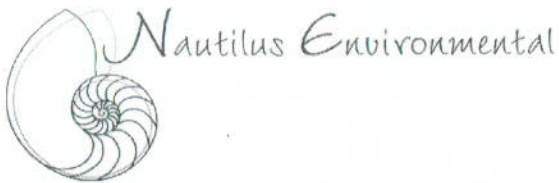 Nautilus Environmental